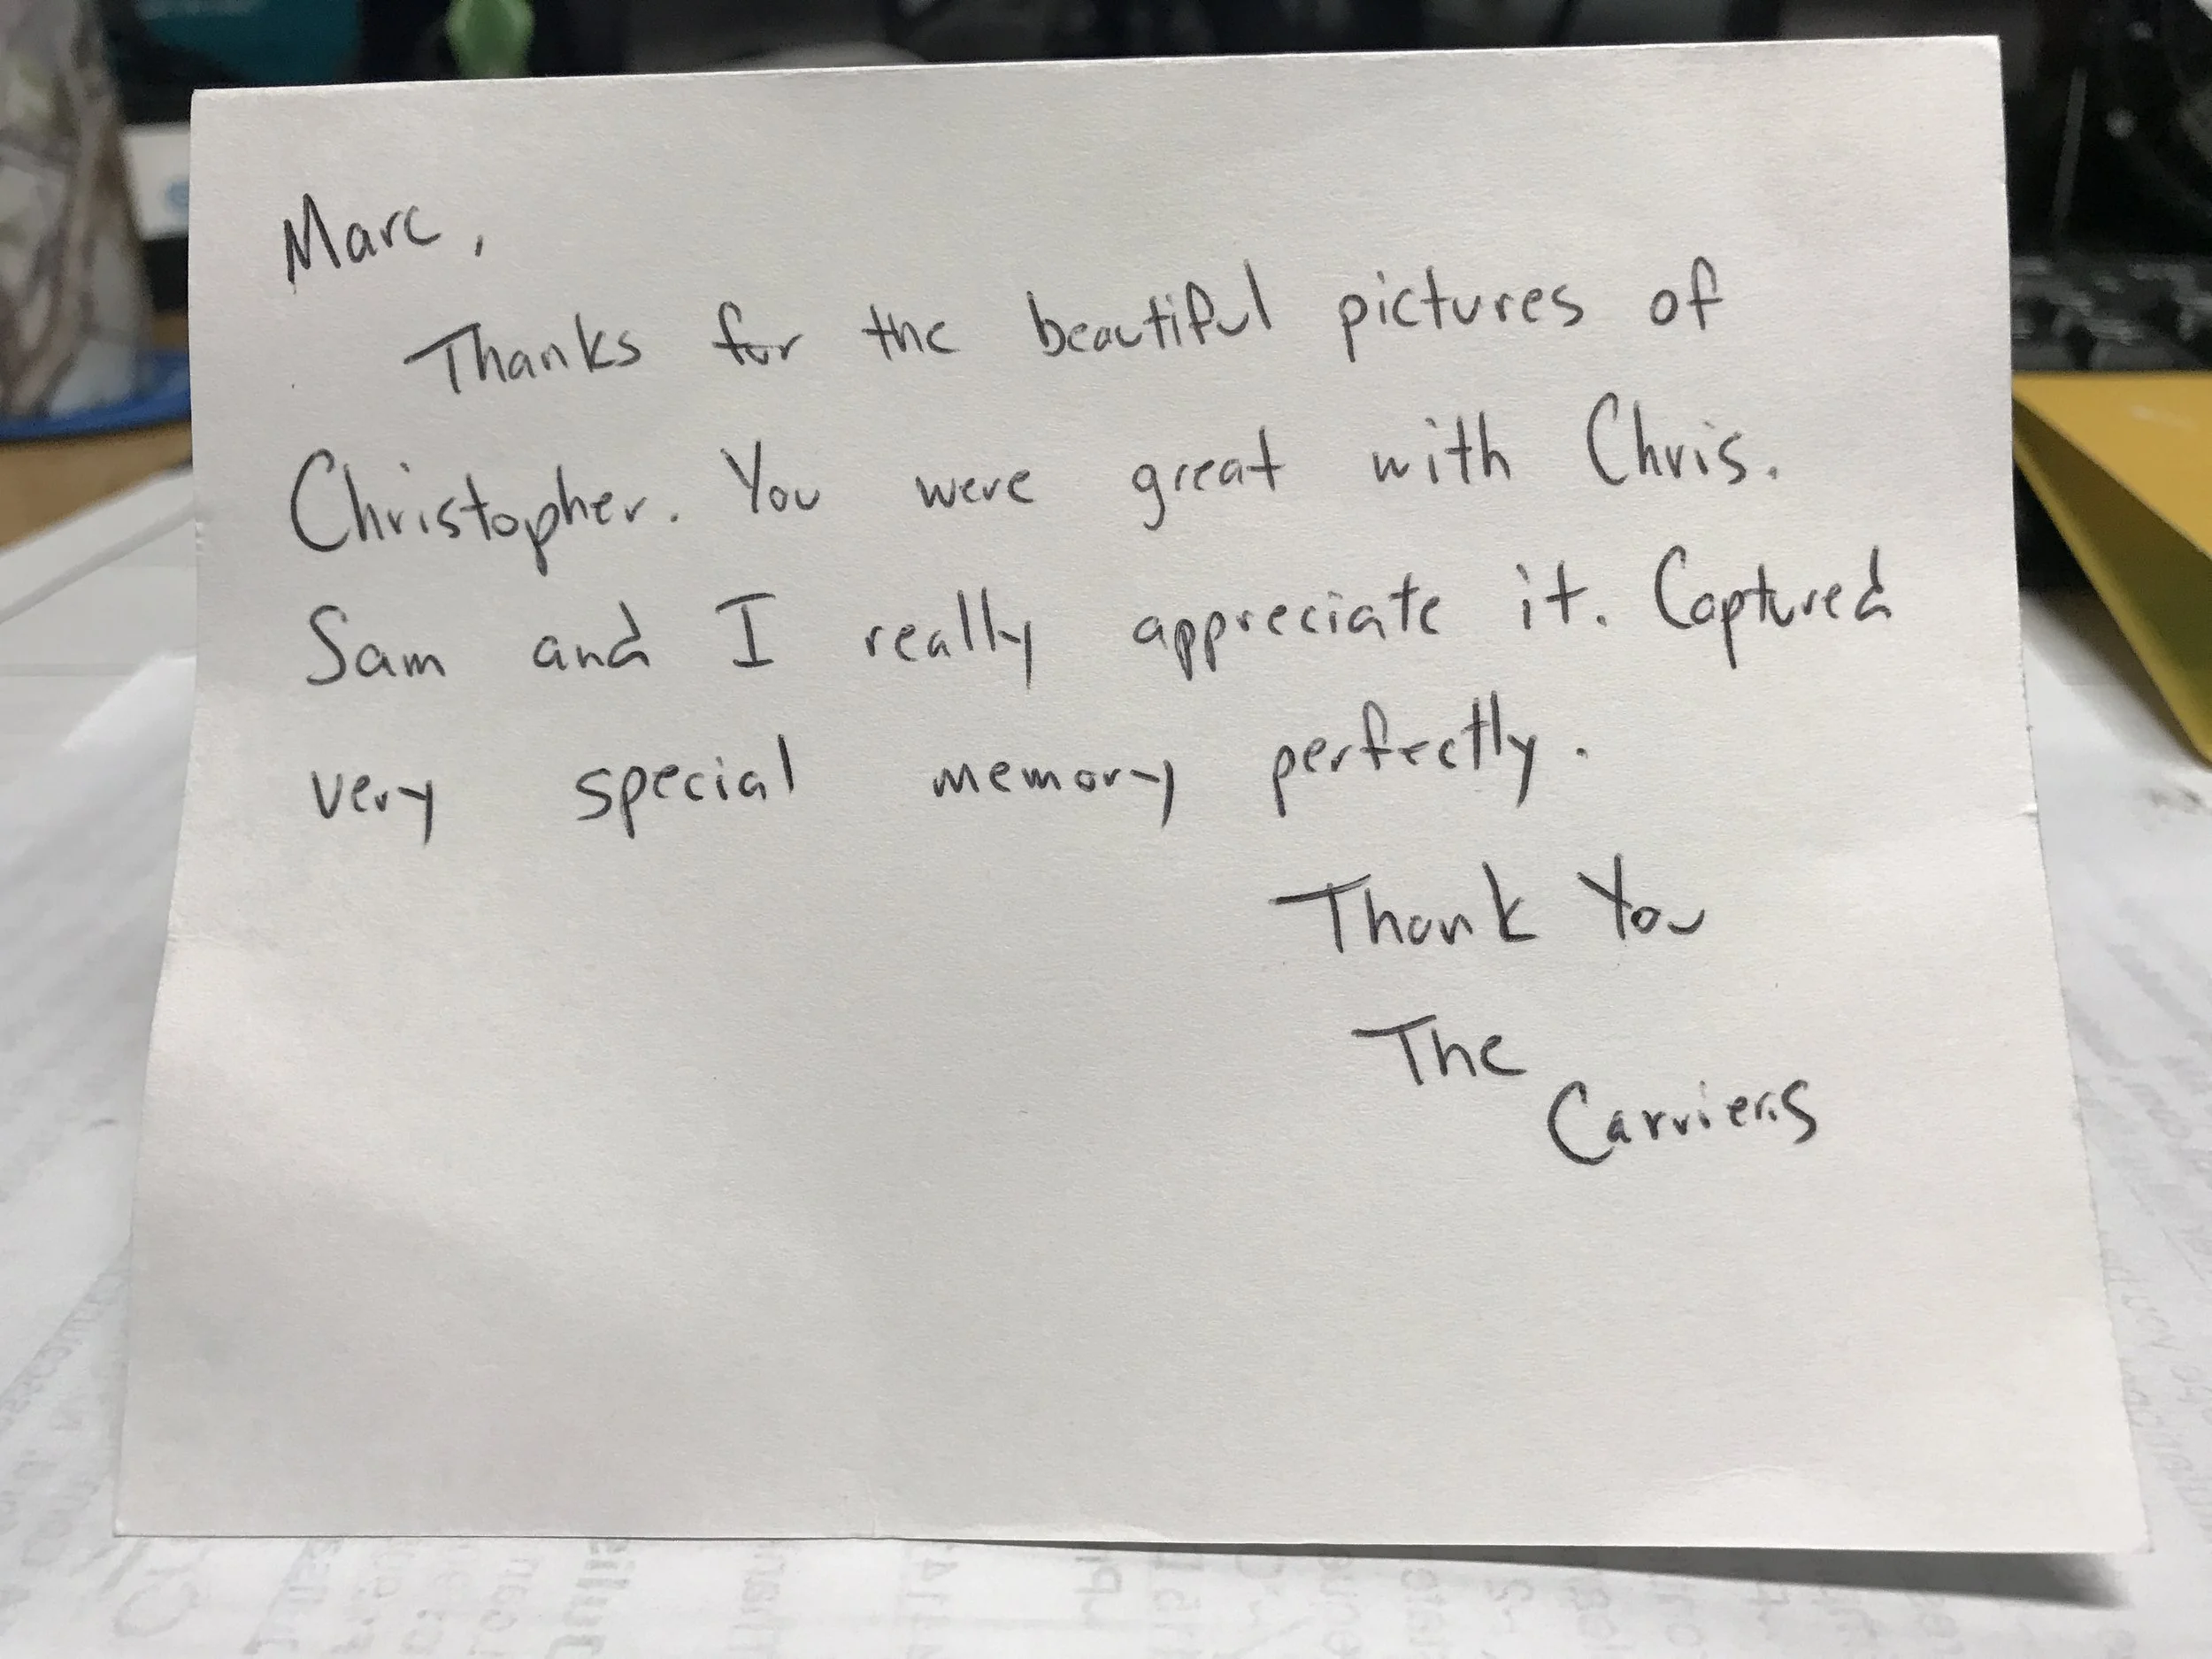 Marc,
Thanks for the beautiful pictures of
Christopher. You were great with Chris.
Sam and I really appreciate it. Captured
very special memory perfectly.
Thank You
The
Carriers